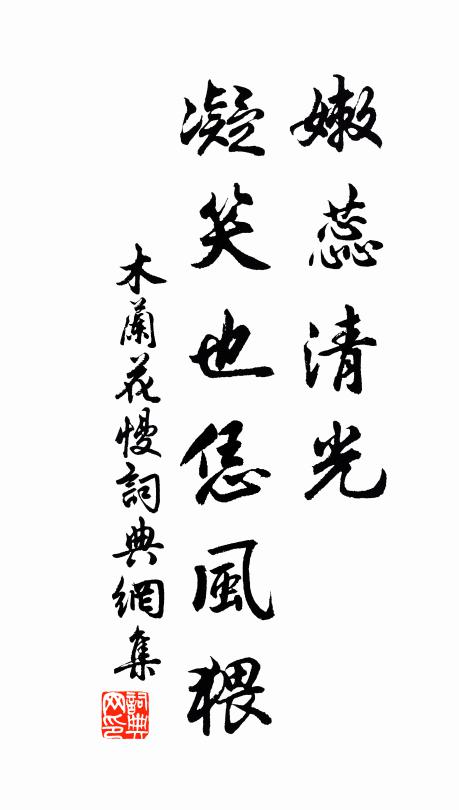 嫩蕊清光
凝笑也恁風猥
木蘭花慢詞典網集
詞典網印